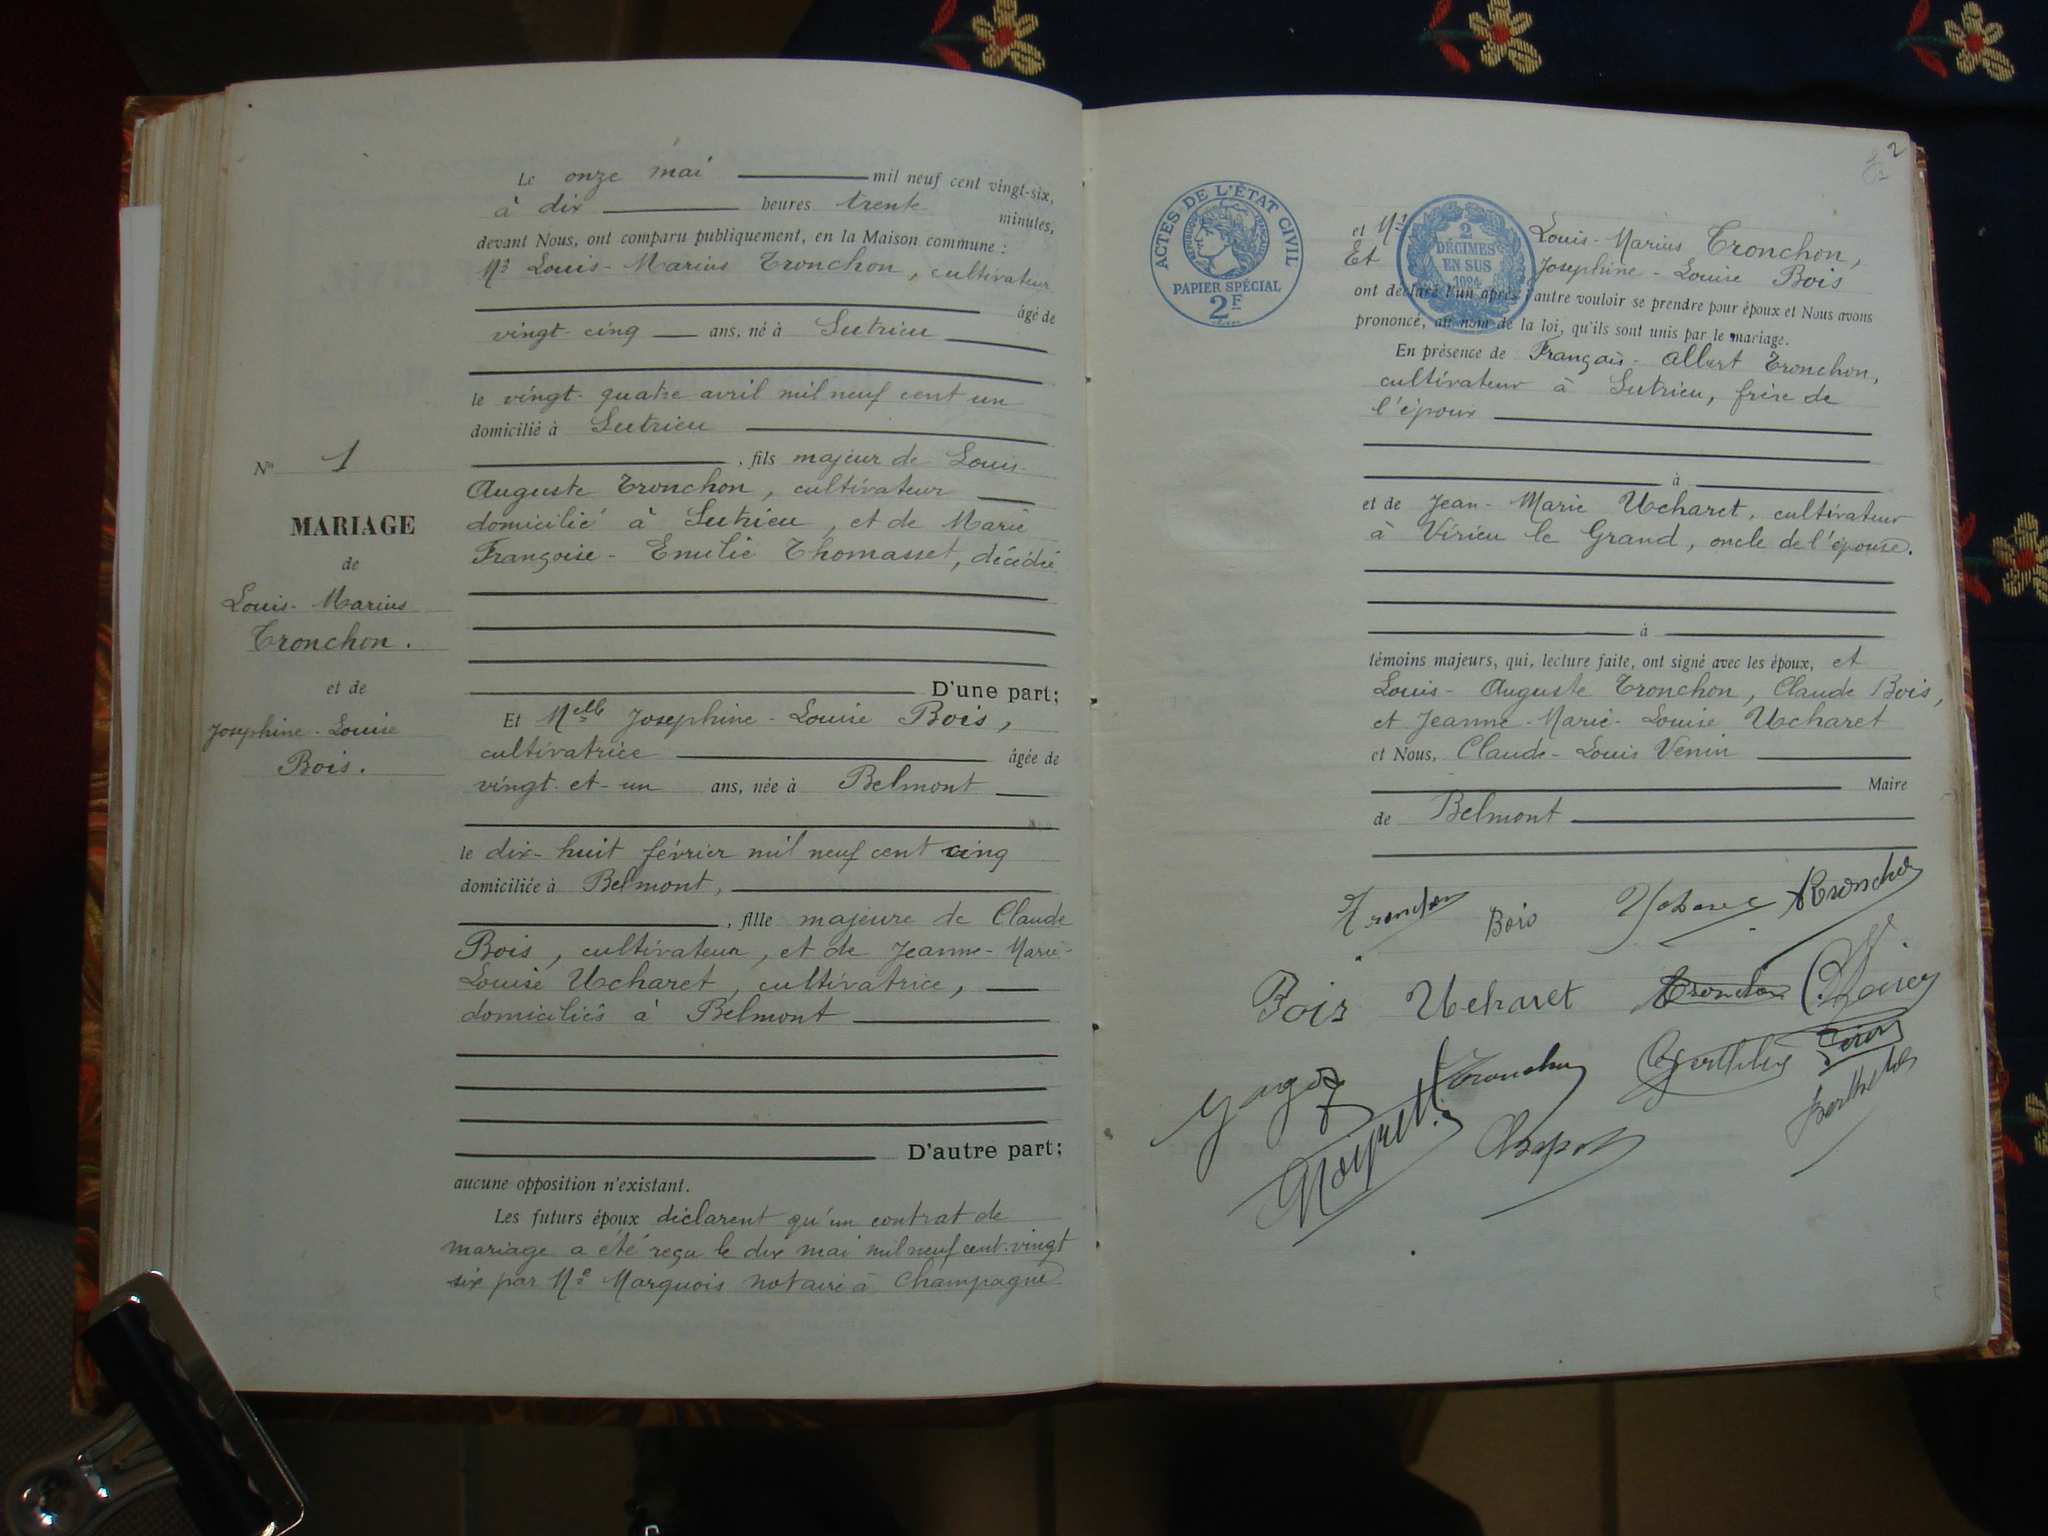 Le onze mai mil neuf cent vingt-six,
à dix heures trente minutes,
devant Nous, ont comparu publiquement, en la Maison commune :
Mr Louis-Marius Tronchon, cultivateur
âgé de
vingt-cinq ans, né à Sutrieu
le vingt-quatre avril mil neuf cent un
domicilié à Sutrieu
, fils majeur de Louis-
Auguste Tronchon, cultivateur
domicilié à Sutrieu, et de Marie
Françoise-Emilie Thomasset, décédée
D'une part;
Et Melle Josephine-Louise Bois,
cultivatrice âgée de
vingt-et-un ans, née à Belmont
le dix-huit février mil neuf cent cinq
domiciliée à Belmont,
, fille majeure de Claude
Bois, cultivateur, et de Jeanne-Marie-
Louise Ucharet, cultivatrice,
domiciliés à Belmont
D'autre part;
aucune opposition n'existant.
Les futurs époux déclarent qu'un contrat de
mariage a été reçu le dix mai mil neuf cent vingt
six par Me Marquois notaire à Champagne
No 1
MARIAGE
de
Louis-Marius
Tronchon.
et de
Josephine-Louise
Bois.
2
ACTES DE L'ÉTAT CIVIL
PAPIER SPÉCIAL
2F
2
DÉCIMES
EN SUS
1924
et Mr Louis-Marius Tronchon,
Et Josephine-Louise Bois
ont déclaré l'un après l'autre vouloir se prendre pour époux et Nous avons
prononcé, au nom de la loi, qu'ils sont unis par le mariage.
En présence de François-Albert Tronchon,
cultivateur à Sutrieu, frère de
l'époux
à
et de Jean-Marie Ucharet, cultivateur
à Virieu le Grand, oncle de l'épouse.
à
témoins majeurs, qui, lecture faite, ont signé avec les époux, et
Louis-Auguste Tronchon, Claude Bois,
et Jeanne-Marie-Louise Ucharet
et Nous, Claude-Louis Venin
Maire
de Belmont
Tronchon Bois Ucharet Tronchon
Bois Ucharet Tronchon
Tronchon Berthelet
Berthelet